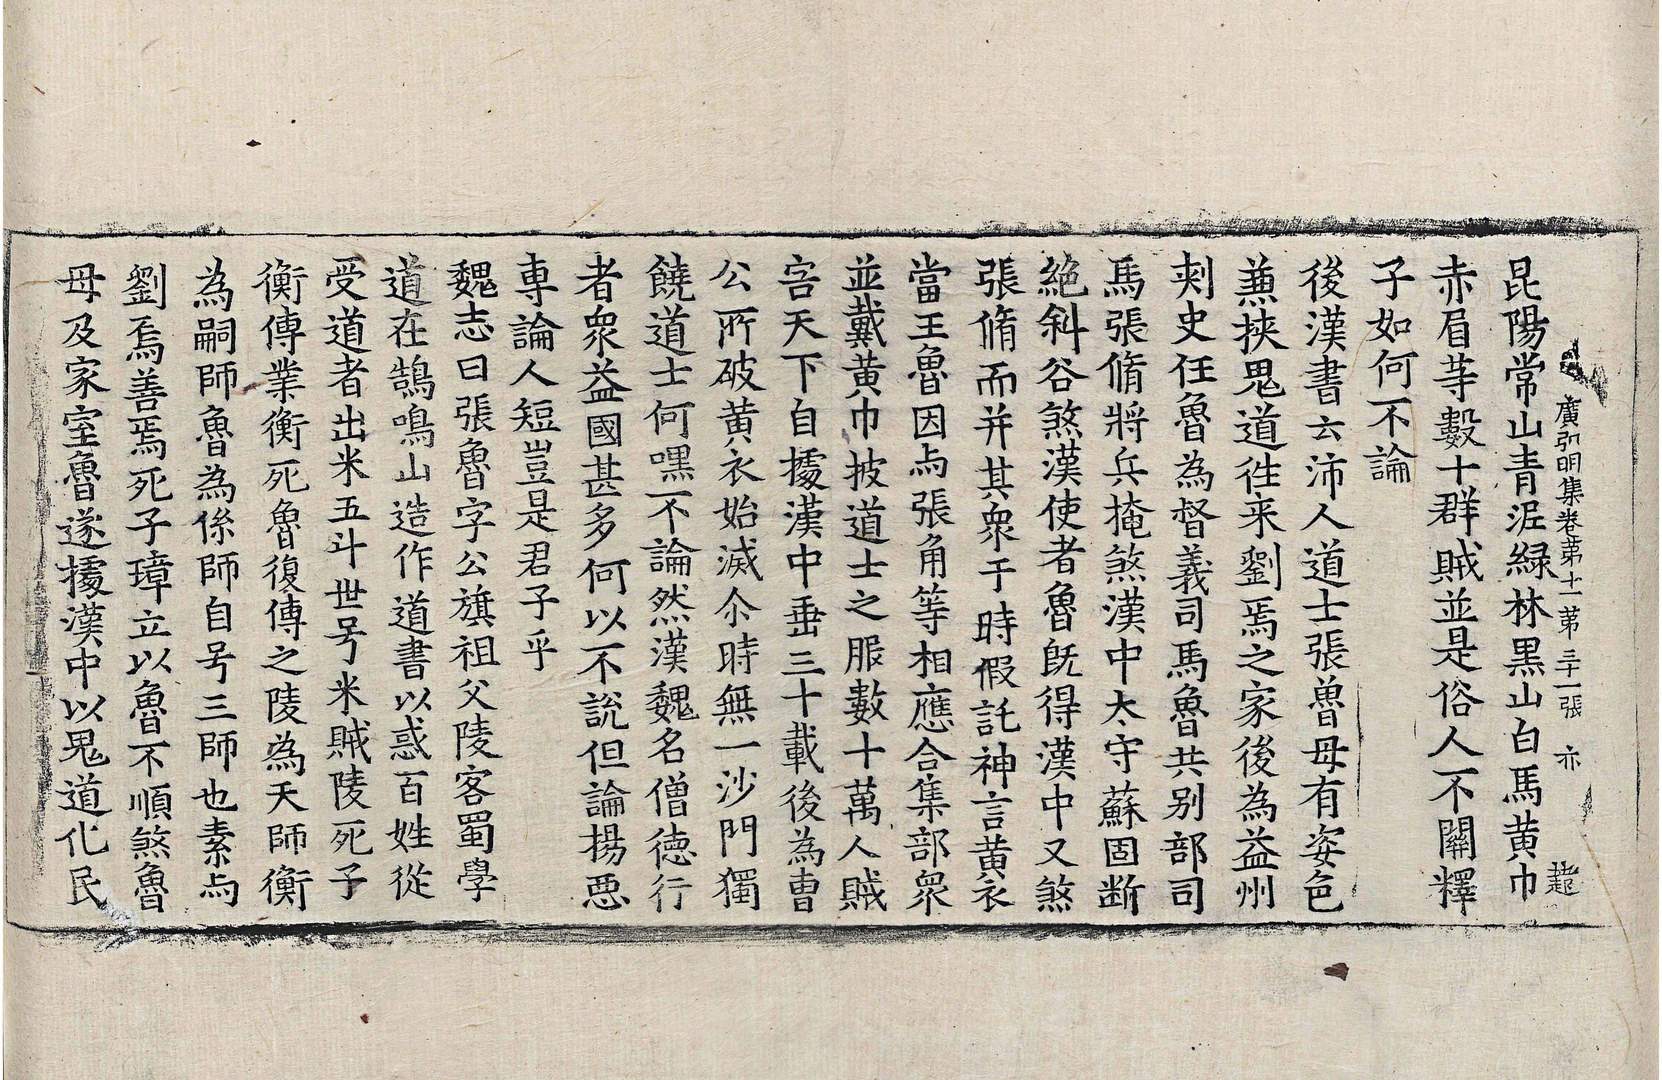 廣弘明集卷苐十一 苐三十一張 亦
昆陽常山青泥緑林黒山白馬黄巾
赤眉䓁數十群賊並是俗人不關釋
子如何不論
後漢書云沛人道士張魯母有姿色
兼挟鬼道徃来劉焉之家後為益州
刾史任魯為督義司馬魯共别部司
馬張脩將兵掩煞漢中太守蘇固断
絕斜谷煞漢使者魯旣得漢中又煞
張脩而并其衆于時假託神言黄衣
當王魯因与張角等相應合集部衆
並戴黄巾披道士之服數十萬人賊
害天下自據漢中垂三十載後為曺
公所破黄衣始滅尒時無一沙門獨
饒道士何嘿不論然漢魏名僧德行
者衆益國甚多何以不說但論揚惡
專論人短豈是君子乎
魏志曰張魯字公旗祖父陵客蜀學
道在鵠鳴山造作道書以惑百姓從
受道者出米五斗世号米賊陵死子
衡傳業衡死魯復傳之陵為天師衡
為嗣師魯為係師自号三師也素与
劉焉善焉死子璋立以魯不順煞魯
母及家室魯遂據漢中以鬼道化民